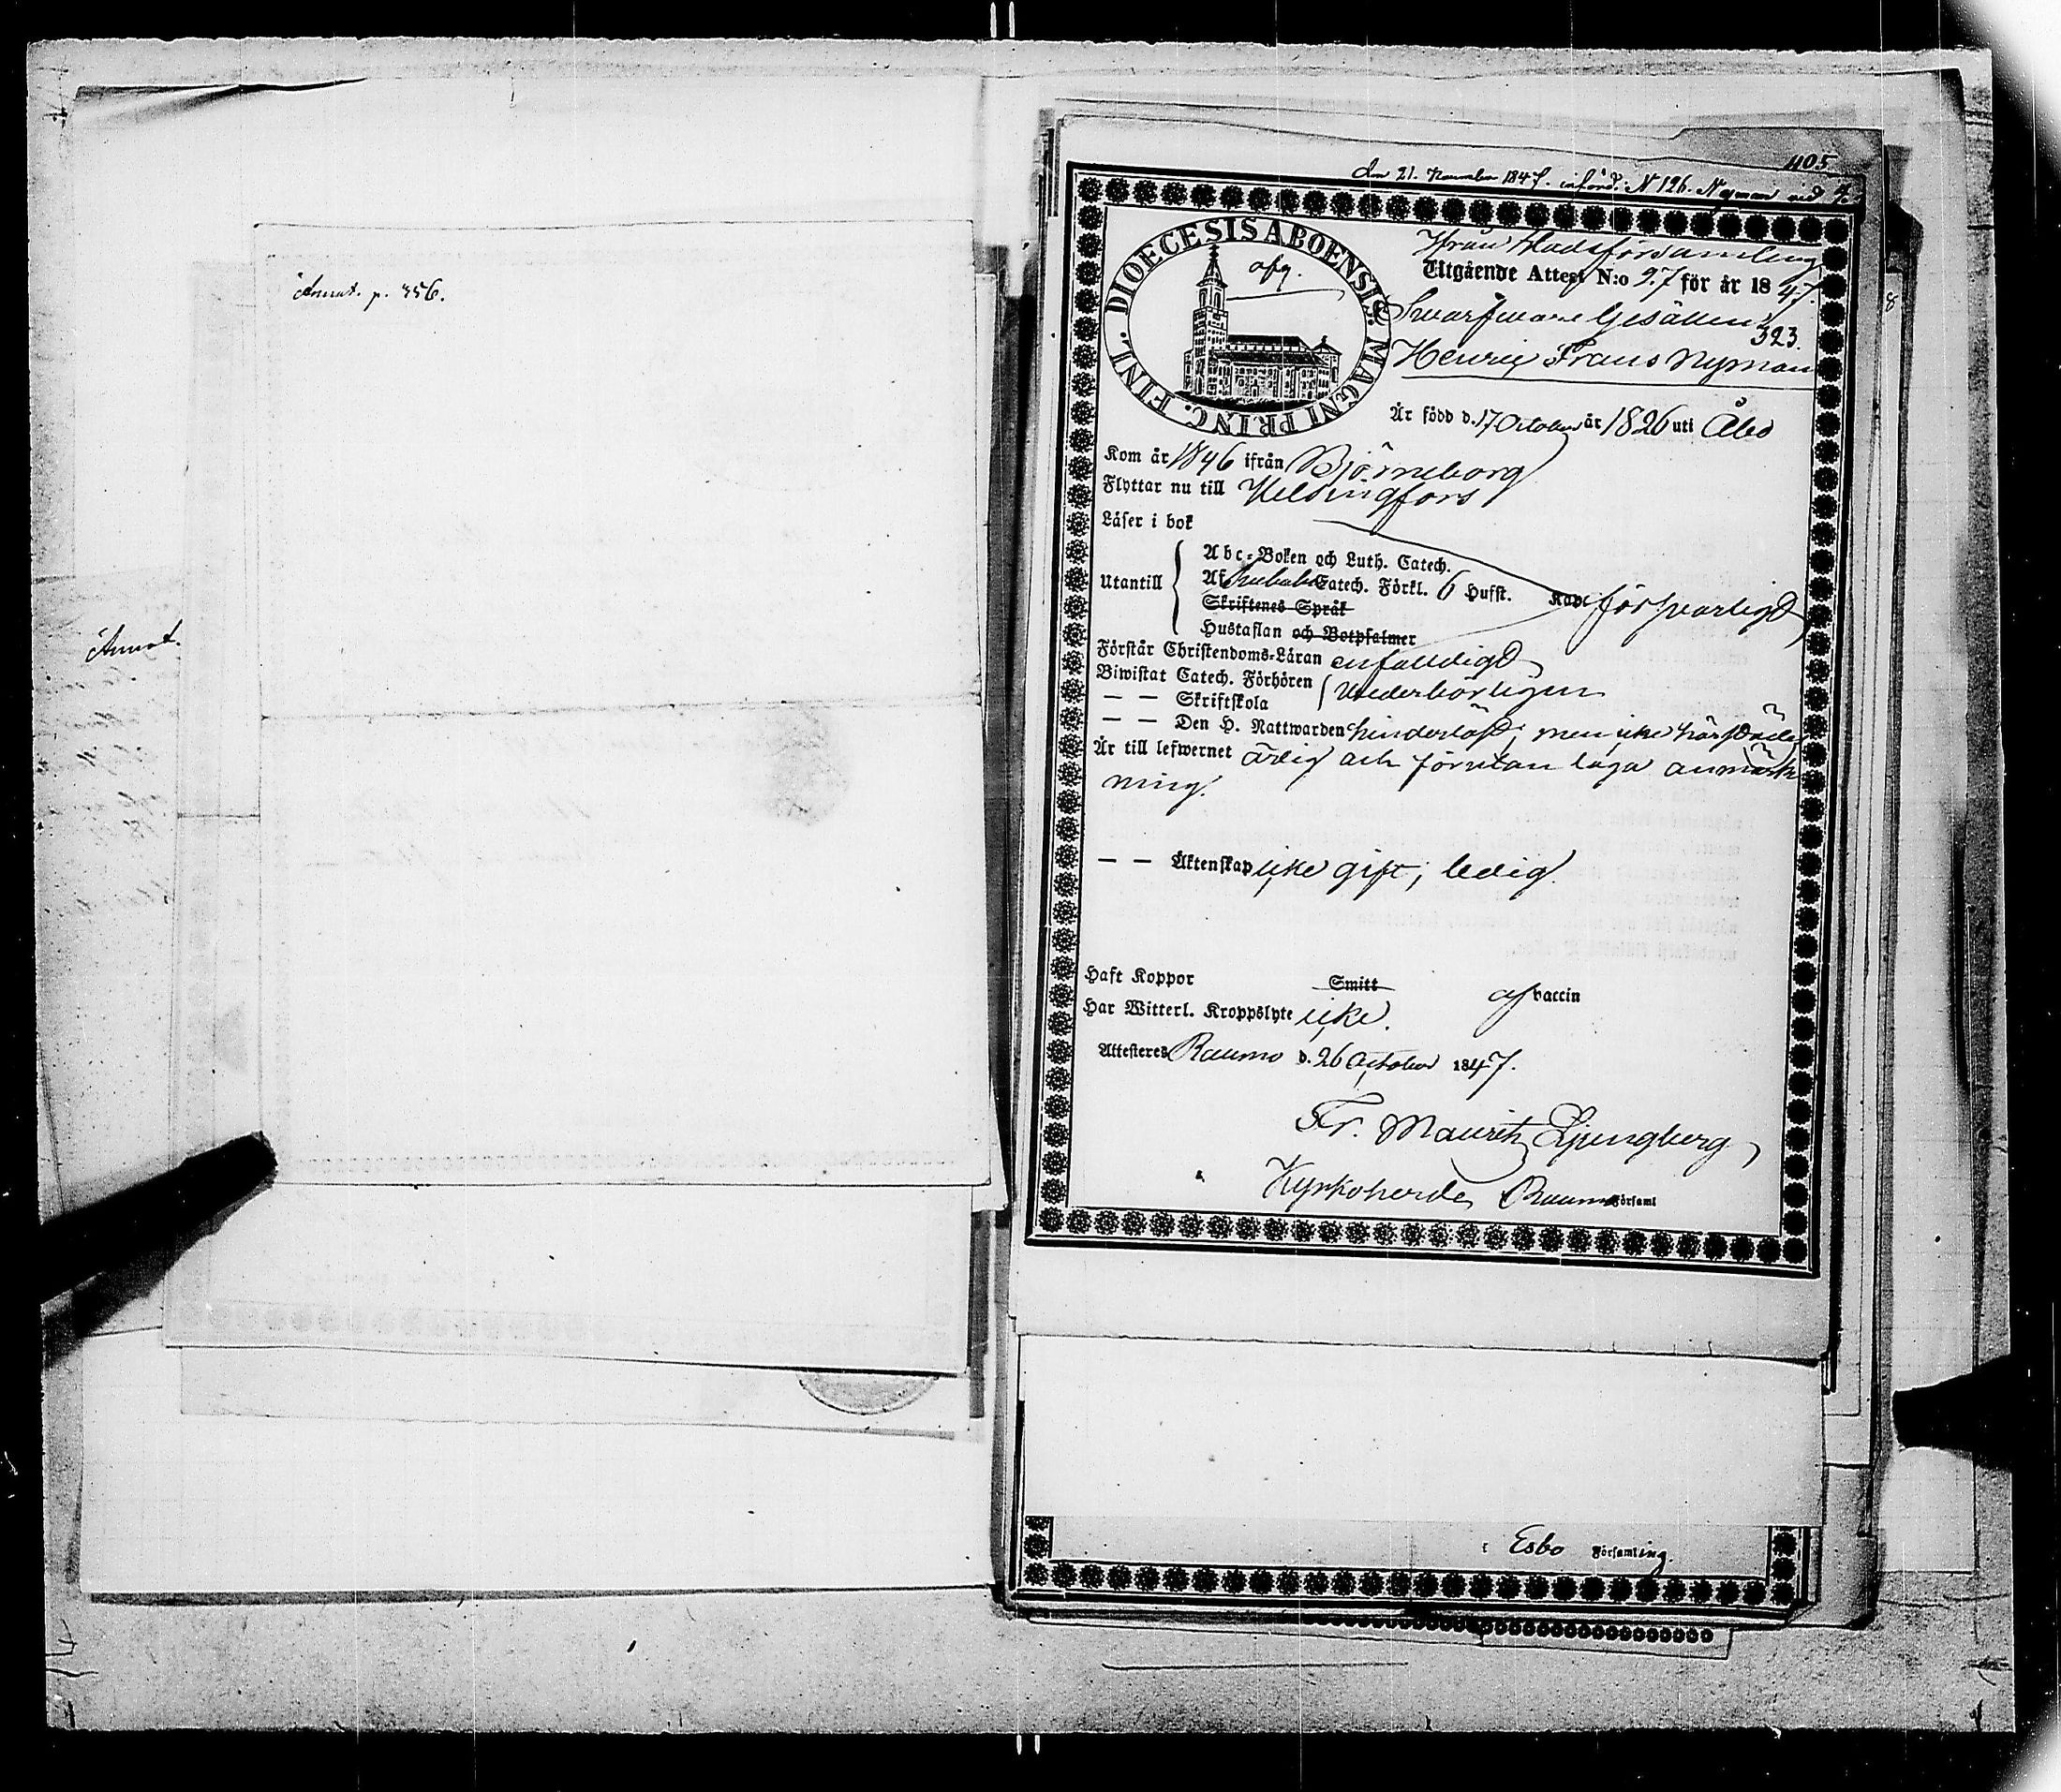 Annot. p. 356.
Annot.
405.
den 21. November 1847. införd. N 126. Nyman
DIOECESIS ABOENSIS. MAGNI PRINC. FINL.
afg.
Ifrån Stadsförsamling
Utgående Attest N:o 97 för år 1847.
Swarfware Gesällen
323.
Henric Frans Nyman
Är född d. 17 October år 1826 uti Åbo
Kom år 1846 ifrån Björneborg
Flyttar nu till Helsingfors
Läser i bok
Abc-Boken och Luth. Catech.
Utantill Af Catech. Förkl. 6 Hufst. försvarligt
Skriftenes Språk
Hustaflan och Botpsalmer
Förstår Christendoms-Läran enfaldigt
Biwistat Catech. Förhören
— — Skriftskola vederbörligen
— — Den H. Nattwarden hinderlöst, men icke härstädes
Är till lefwernet ärlig och förutan laga anmärk
ning.
— — Äktenskap icke gift, ledig.
Haft Koppor Smitt af vaccin
Har Witterl. Kroppslyte icke.
Attesteres Raumo d. 26 October 1847.
Fr. Mauritz Ljungberg
Kyrkoherde, Raumo Församl
Esbo Församling.
8